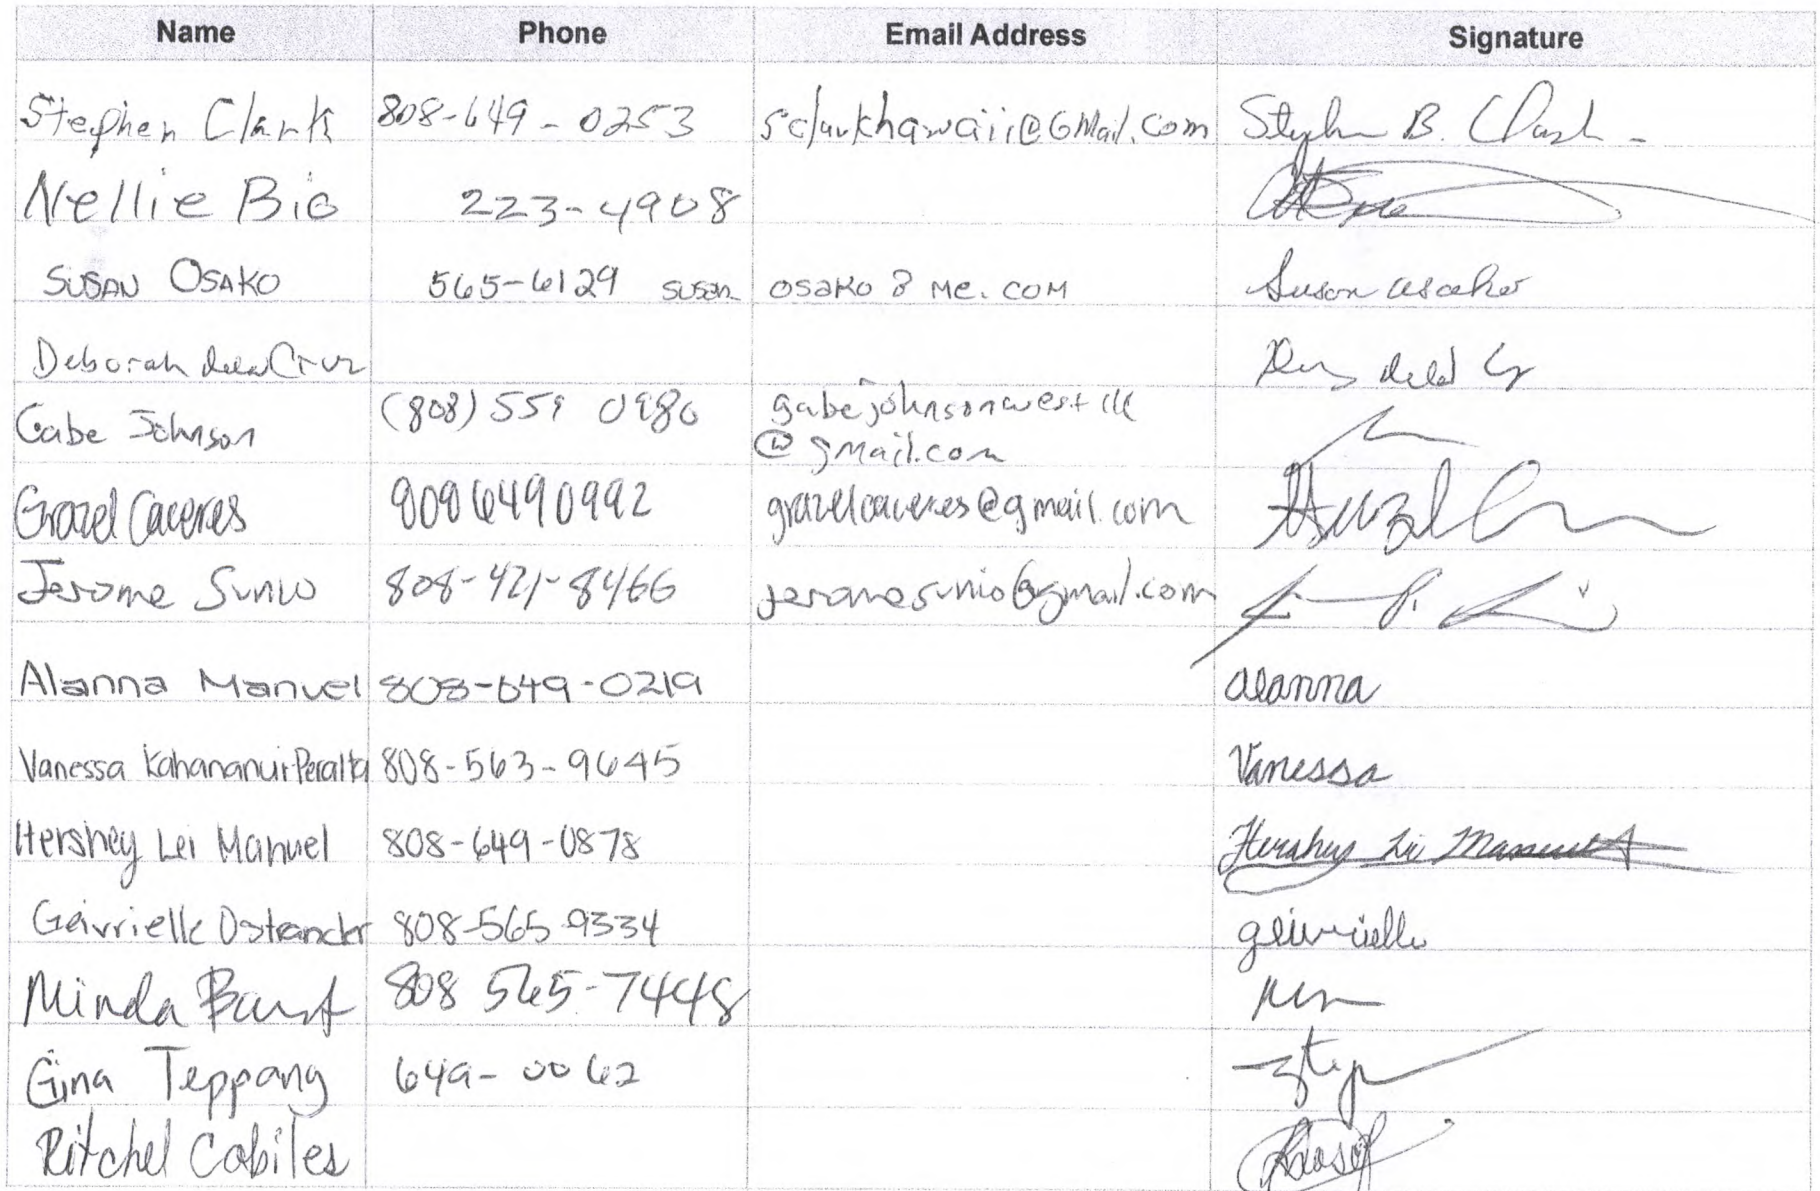 Name Phone Email Address Signature
Stephen Clark 808-649-0253 sclarkhawaii@GMail.com Stephen B. Clark
Nellie Bio 223-4908
SUSAN OSAKO 565-6129 susan osako @ me.com Susan Osako
Deborah dela Cruz
Gabe Johnson (808) 559 gabejohnsonwest
@gmail.com
Grazel Caceres 8086490992 grazelcaceres@gmail.com
Jerome Sunio 808-421-8466 jeromesunio@gmail.com
Alanna Manuel 808-649-0219 alanna
Vanessa Kahananui-Peralta 808-563-9645 Vanessa
Hershey Lei Manuel 808-649-0878 Hershey Lei Manuel
Geivrielle Ostrander 808-565-9334 geivrielle
Minda 808 565-7448
Gina Teppang 649-0062
Ritchel Cabiles